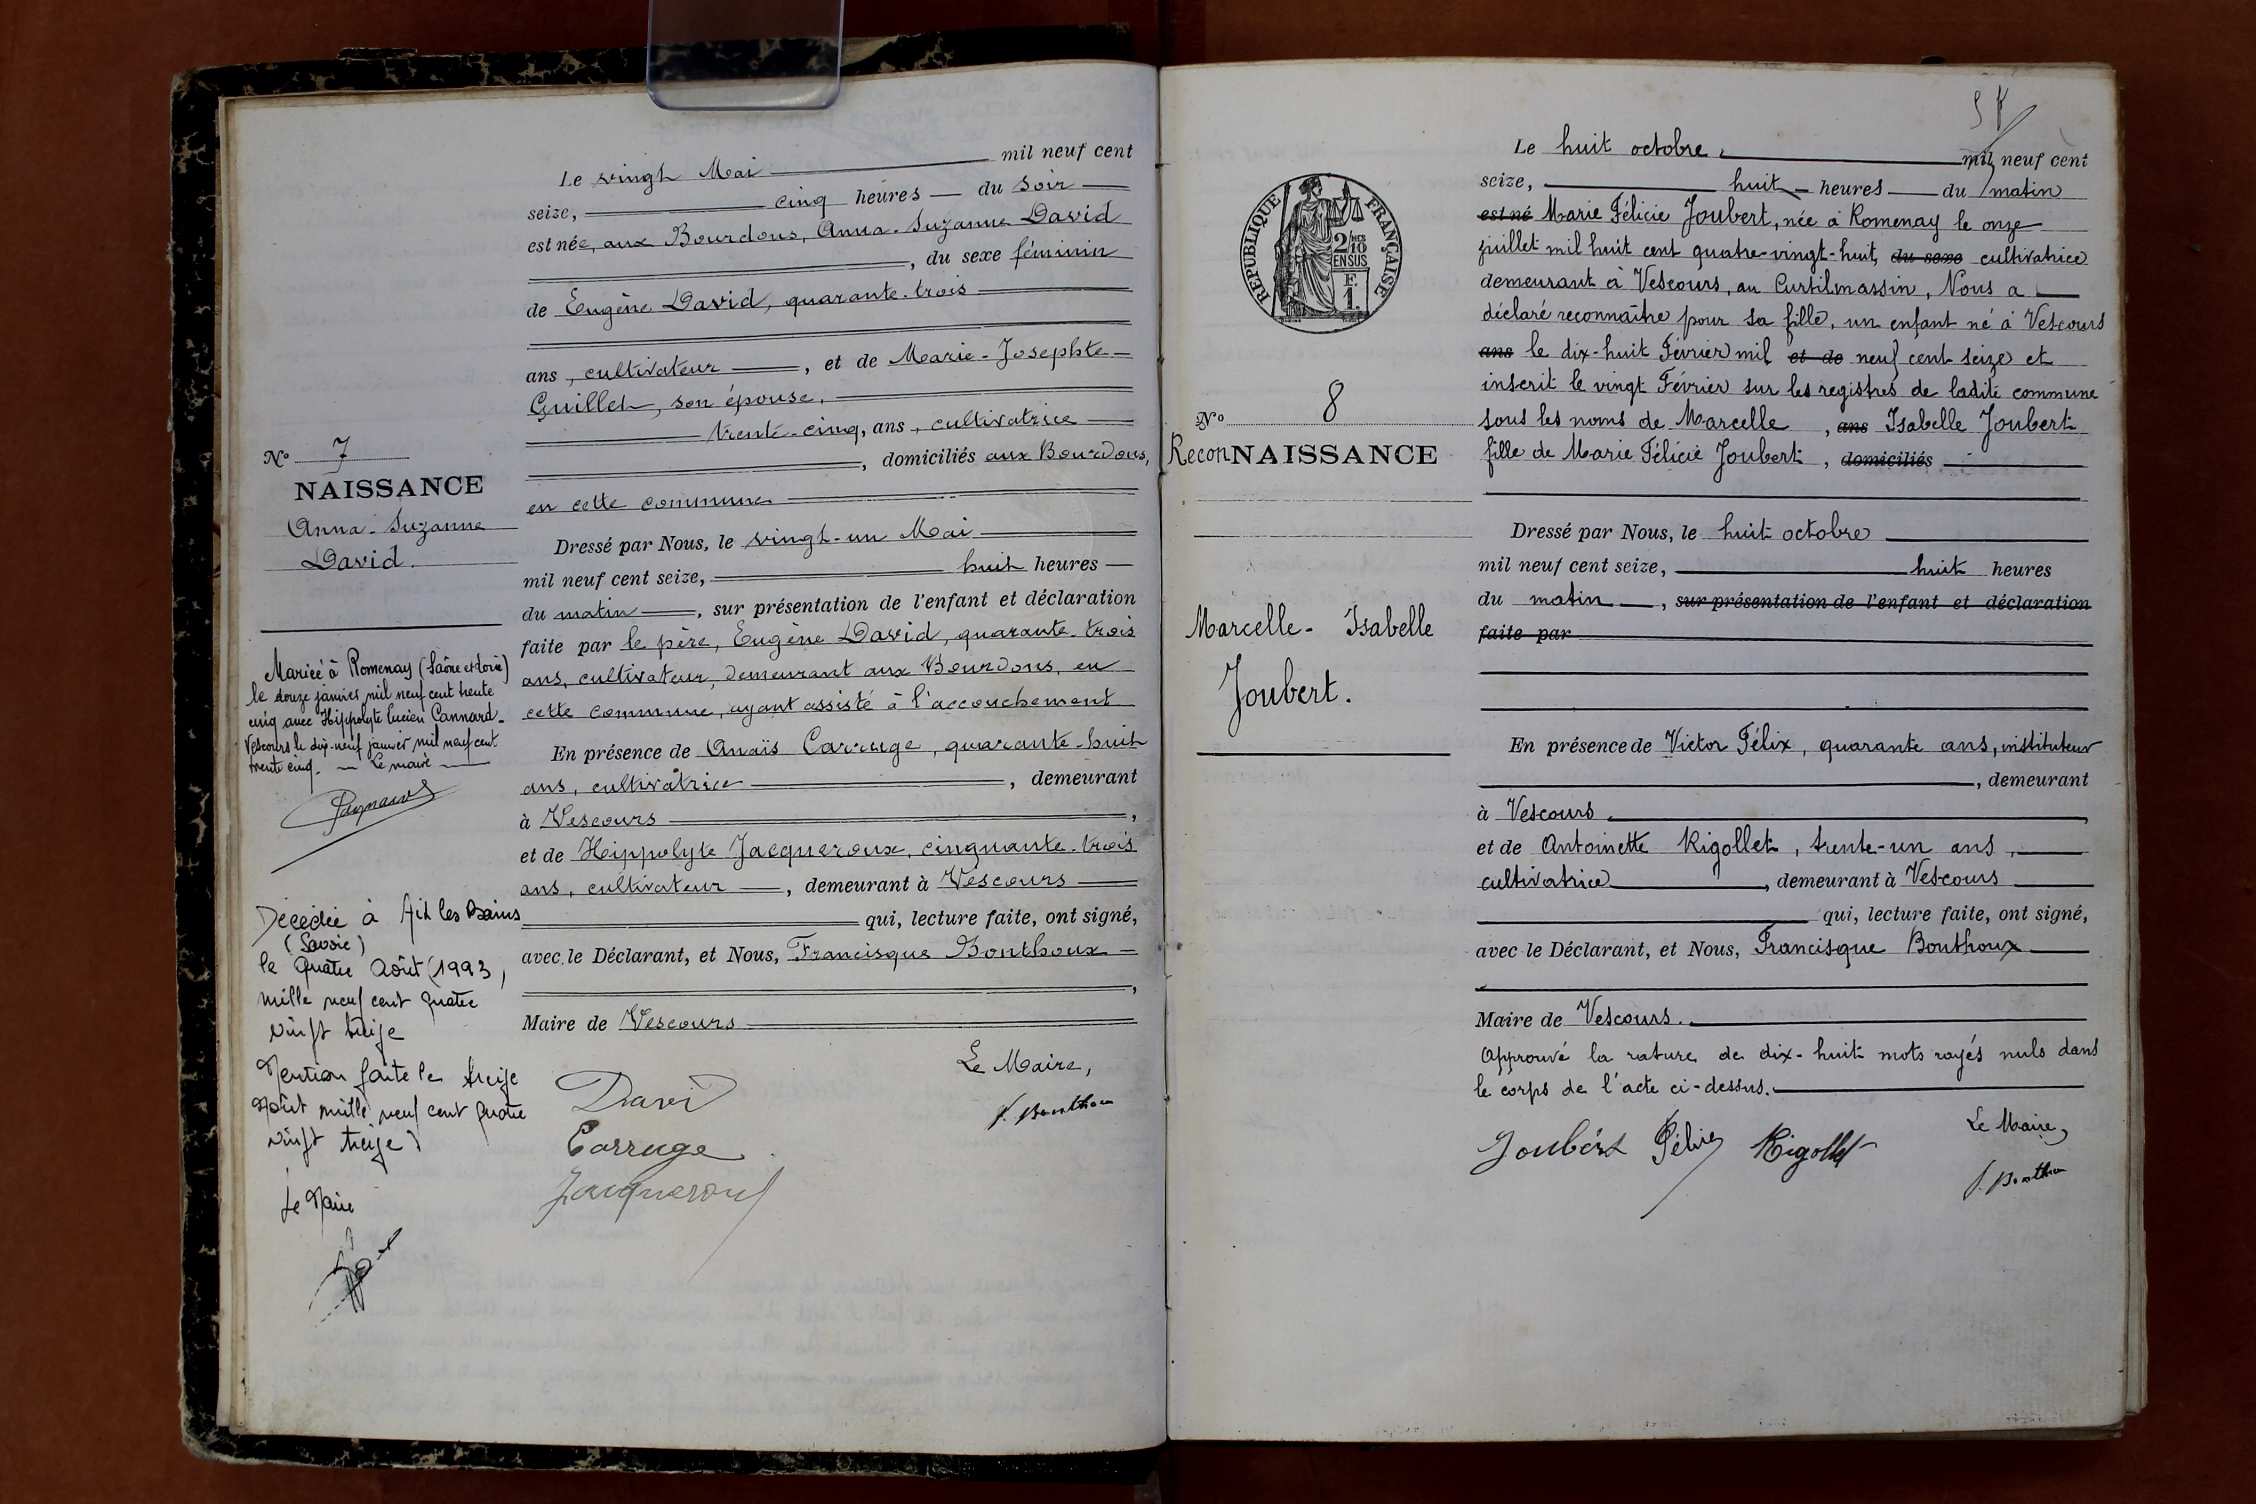 Le vingt Mai mil neuf cent
seize, cinq heures du soir
est née, aux Bourdons, Anna-Suzanne David
, du sexe féminin
de Eugène David, quarante-trois
ans, cultivateur, et de Marie-Josephte
Guillet, son épouse,
trente-cinq, ans, cultivatrice
, domiciliés aux Bourdons,
en cette commune
Dressé par Nous, le vingt-un Mai
mil neuf cent seize, huit heures
du matin, sur présentation de l'enfant et déclaration
faite par le père, Eugène David, quarante-trois
ans, cultivateur, demeurant aux Bourdons, en
cette commune, ayant assisté à l'accouchement
En présence de Anaïs Carruge, quarante-huit
ans, cultivatrice, demeurant
à Vescours,
et de Hippolyte Jacqueroux, cinquante-trois
ans, cultivateur, demeurant à Vescours
qui, lecture faite, ont signé,
avec le Déclarant, et Nous, Francisque Bonthoux
,
Maire de Vescours
Le Maire,
David
F. Bonthoux
Carruge
Jacqueroux
N° 7
NAISSANCE
Anna-Suzanne
David.
Mariée à Romenay (Saône et Loire)
le douze janvier mil neuf cent trente
cinq avec Hippolyte Lucien Cannard.
Vescours le dix-neuf janvier mil neuf cent
trente cinq. — Le maire
Décédée à Aix les Bains
(Savoie)
le quatre Août (1993)
mille neuf cent quatre
vingt treize
Mention faite le treize
Août mille neuf cent quatre
vingt treize
Le Maire
Le huit octobre, mil neuf cent
seize, huit heures du matin
est né Marie Félicie Joubert, née à Romenay le onze
juillet mil huit cent quatre-vingt-huit, du sexe cultivatrice
demeurant à Vescours, au Curtilmassin, Nous a
déclaré reconnaître pour sa fille, un enfant né à Vescours
ans le dix-huit Février mil et de neuf cent seize et
inscrit le vingt Février sur les registres de ladite commune
sous les noms de Marcelle, ans Isabelle Joubert
fille de Marie Félicie Joubert, domiciliés
Dressé par Nous, le huit octobre
mil neuf cent seize, huit heures
du matin, sur présentation de l'enfant et déclaration
faite par
En présence de Victor Félix, quarante ans, instituteur
, demeurant
à Vescours,
et de Antoinette Rigollet, trente-un ans,
cultivatrice, demeurant à Vescours
qui, lecture faite, ont signé,
avec le Déclarant, et Nous, Francisque Bonthoux
Maire de Vescours.
Approuvé la rature de dix-huit mots rayés nuls dans
le corps de l'acte ci-dessus.
Le Maire,
Joubert Félix Rigollet
F. Bonthoux
RÉPUBLIQUE FRANÇAISE
2/10 EN SUS
F. 1.
N° 8
ReconNAISSANCE
Marcelle-Isabelle
Joubert.